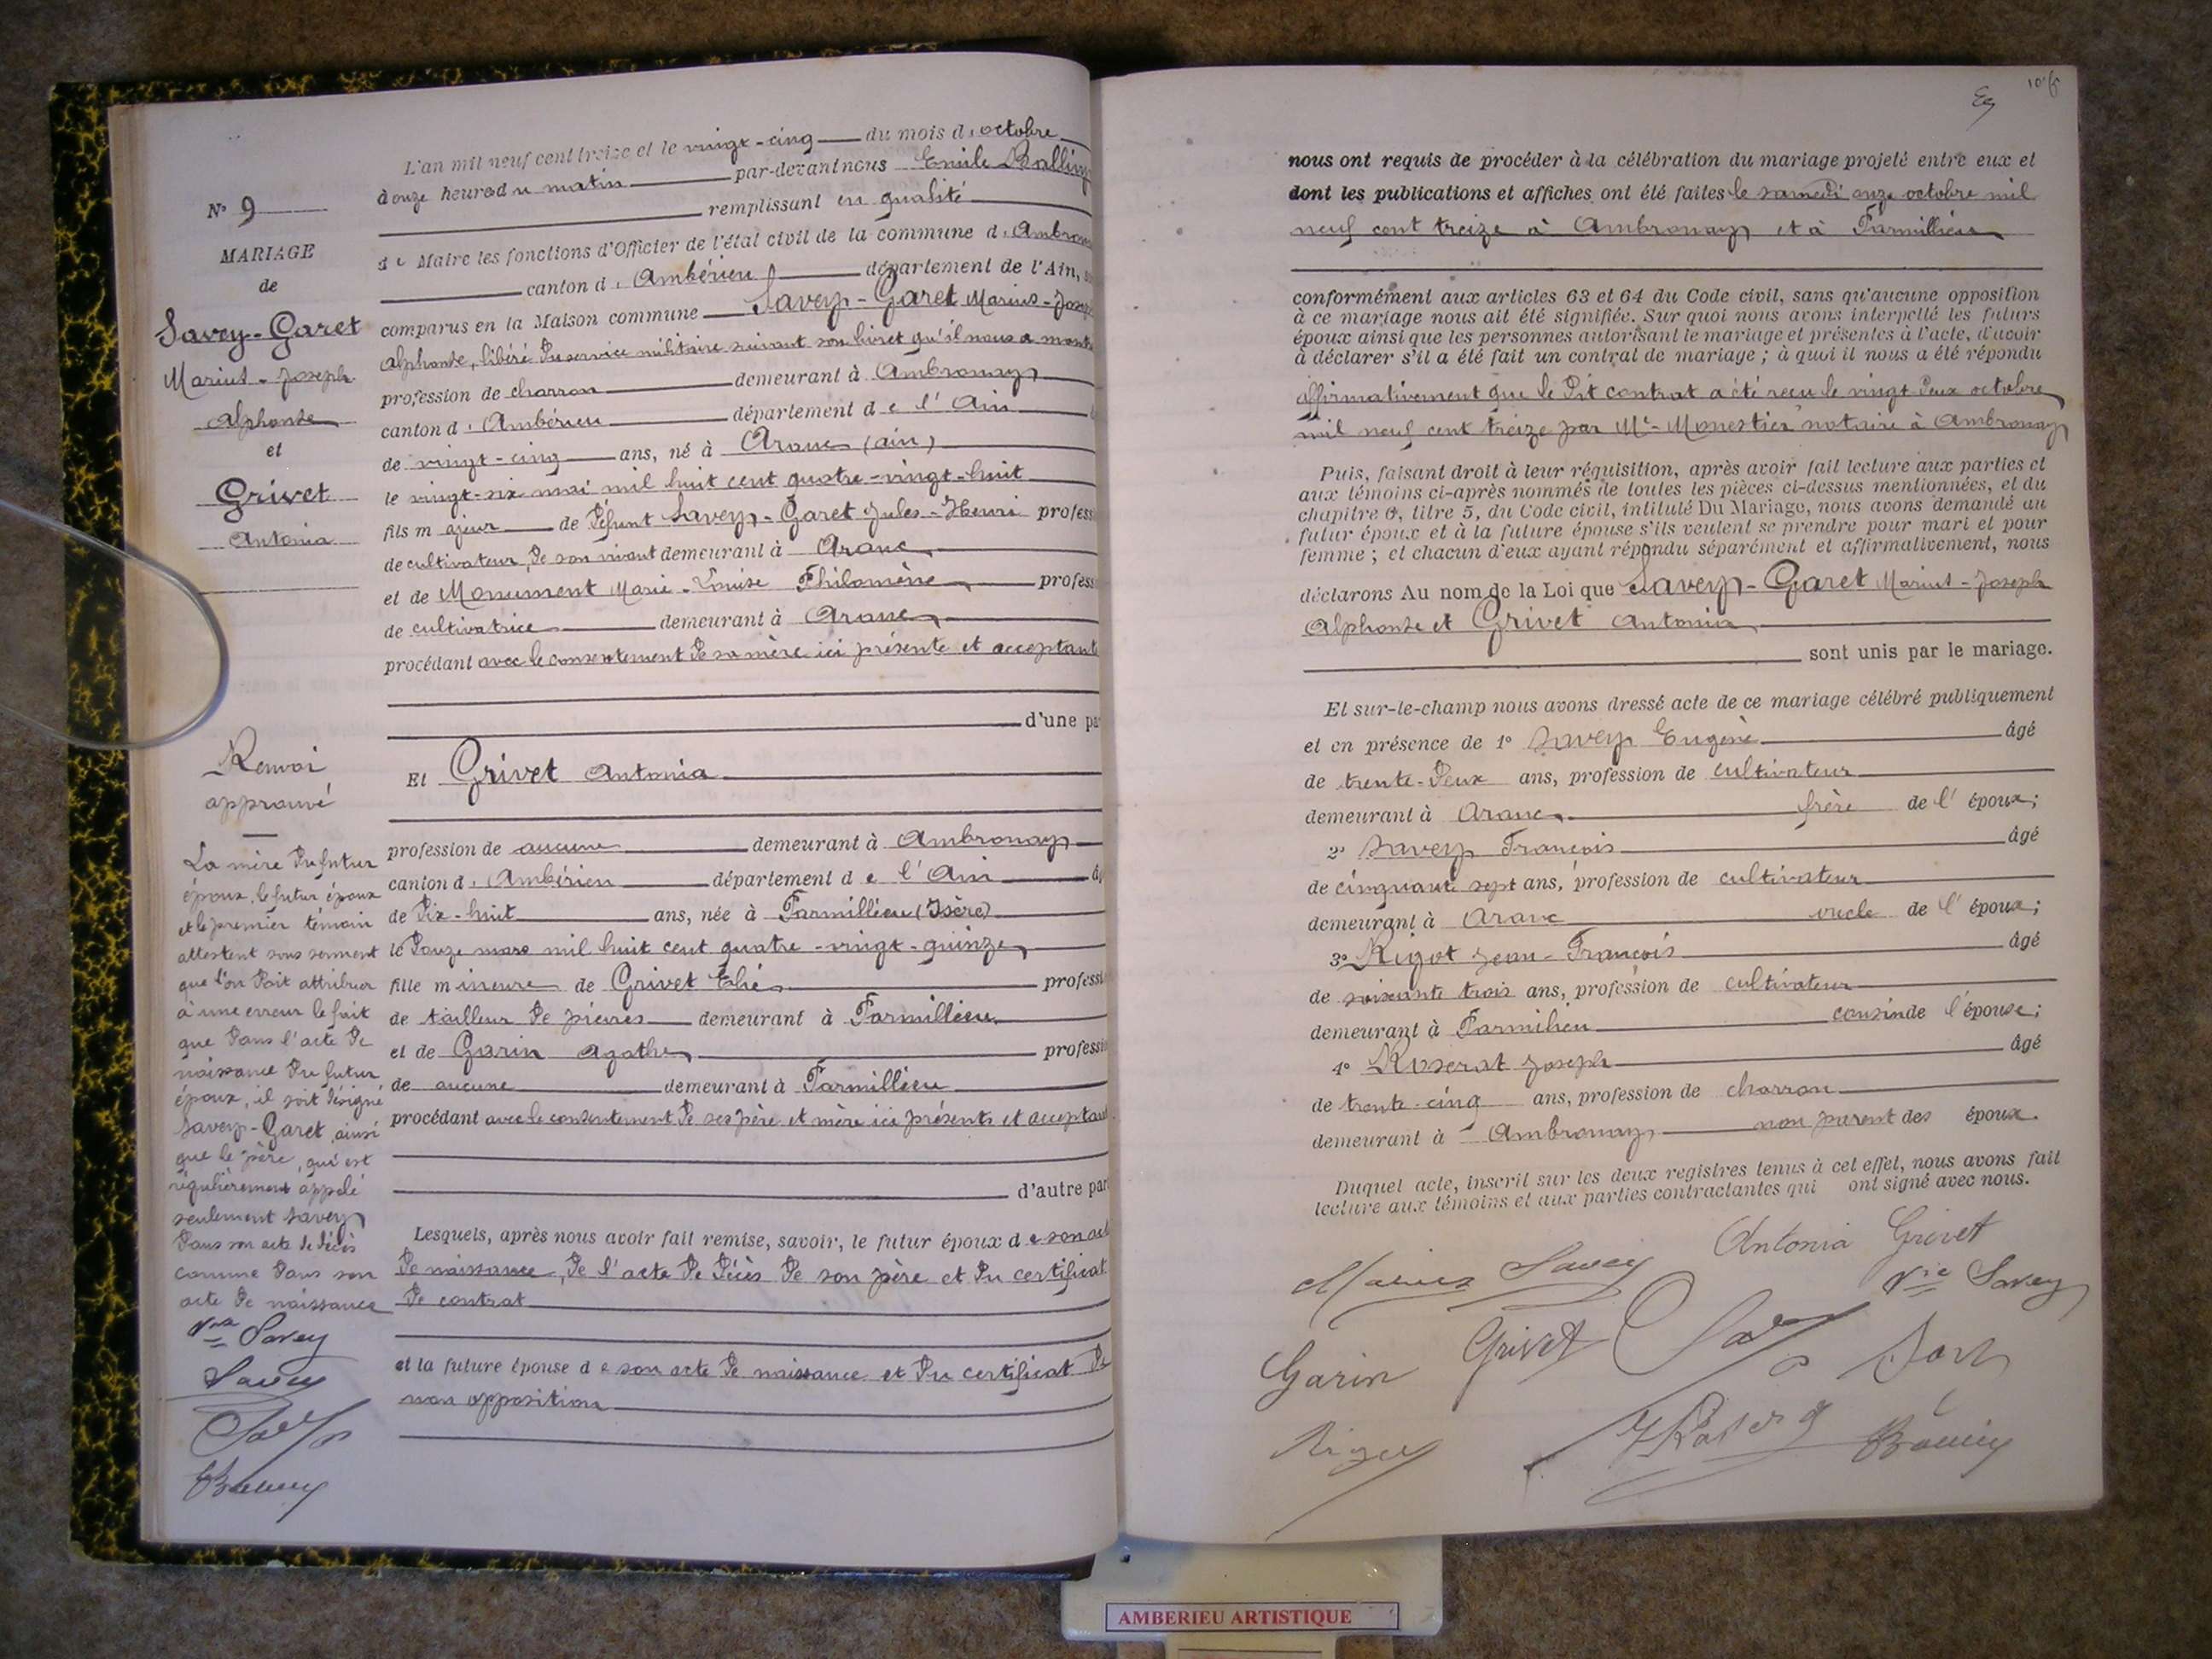 N° 9
MARIAGE
de
Savey-Garet
Marius-Joseph
Alphonse
et
Grivet
Antonia
L'an mil neuf cent treize et le vingt-cinq du mois d'octobre
à onze heures du matin par-devant nous Emile
remplissant en qualité
de Maire les fonctions d'Officier de l'état civil de la commune d'
canton d'Ambérieu département de l'Ain,
comparus en la Maison commune Savey-Garet Marius-Joseph
Alphonse, libéré du service militaire suivant son livret qu'il nous a
profession de charron demeurant à Ambronay
canton d'Ambérieu département de l'Ain
de vingt-cinq ans, né à Aranc (ain)
le vingt-six mai mil huit cent quatre-vingt-huit
fils majeur de défunt Savey-Garet Jules-Henri profess
de cultivateur, de son vivant demeurant à Aranc
et de Monument Marie-Louise Philomène profess
de cultivatrice demeurant à Aranc
procédant avec le consentement de sa mère ici présente et acceptante
d'une pa
Et Grivet Antonia
profession de aucune demeurant à Ambronay
canton d'Ambérieu département de l'Ain
de dix-huit ans, née à Parmilieu (Isère)
le douze mars mil huit cent quatre-vingt-quinze
fille mineure de Grivet Elie professi
de tailleur de pierres demeurant à Parmillieu
et de Garin agathe professi
de aucune demeurant à Parmillieu
procédant avec le consentement de ses père et mère ici présents et acceptant
d'autre par
Lesquels, après nous avoir fait remise, savoir, le futur époux de son act
de naissance, de l'acte de décès de son père et du certificat
de contrat
et la future épouse de son acte de naissance et du certificat de
non opposition
Renvoi
approuvé
La mère du futur
époux, le futur époux
et le premier témoin
attestent sous serment
que l'on doit attribuer
à une erreur le fait
que dans l'acte de
naissance du futur
époux, il soit désigné
Savey-Garet, ainsi
que le père, qui est
régulièrement appelé
seulement Savey
dans son acte de décès
comme dans son
acte de naissance
Vve Savey
Savey
nous ont requis de procéder à la célébration du mariage projeté entre eux et
dont les publications et affiches ont été faites le samedi onze octobre mil
neuf cent treize à Ambronay et à Parmillieu
conformément aux articles 63 et 64 du Code civil, sans qu'aucune opposition
à ce mariage nous ait été signifiée. Sur quoi nous avons interpellé les futurs
époux ainsi que les personnes autorisant le mariage et présentes à l'acte, d'avoir
à déclarer s'il a été fait un contrat de mariage ; à quoi il nous a été répondu
affirmativement que le dit contrat a été reçu le vingt-deux octobre
mil neuf cent treize par Me Monestier notaire à Ambronay
Puis, faisant droit à leur réquisition, après avoir fait lecture aux parties et
aux témoins ci-après nommés de toutes les pièces ci-dessus mentionnées, et du
chapitre 6, titre 5, du Code civil, intitulé Du Mariage, nous avons demandé au
futur époux et à la future épouse s'ils veulent se prendre pour mari et pour
femme ; et chacun d'eux ayant répondu séparément et affirmativement, nous
déclarons Au nom de la Loi que Savey-Garet Marius-Joseph
Alphonse et Grivet Antonia
sont unis par le mariage.
Et sur-le-champ nous avons dressé acte de ce mariage célébré publiquement
et en présence de 1° Savey Eugène âgé
de trente-deux ans, profession de cultivateur
demeurant à Aranc frère de l'époux;
2° Savey François âgé
de cinquante sept ans, profession de cultivateur
demeurant à Aranc oncle de l'époux;
3° Rigot Jean-François âgé
de soixante trois ans, profession de cultivateur
demeurant à Parmilieu cousin de l'épouse;
4° Roserat Joseph âgé
de trente-cinq ans, profession de charron
demeurant à Ambronay non parent des époux
Duquel acte, inscrit sur les deux registres tenus à cet effet, nous avons fait
lecture aux témoins et aux parties contractantes qui ont signé avec nous.
Antonia Grivet
Marius Savey
Vve Savey
Garin Grivet
AMBERIEU ARTISTIQUE